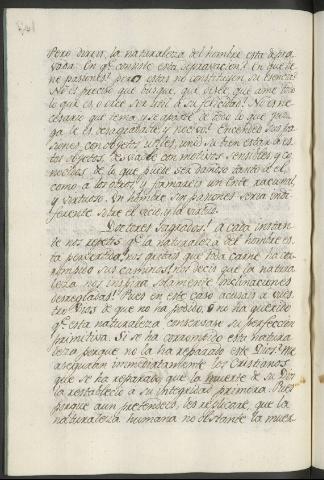 Pero direis, la naturaleza del hombre esta depra-
vada. En qe. consiste esta depravacion? En que tie-
ne pasiones? pero estas no constituyen su esencia?
No es preciso que busque, que desee, que ame todo
lo que es, o cree ser util a su felicidad? No es ne-
cesario que tema y se aparte de todo lo que juz-
ga le es desagradable y nocivo? Encended sus pa-
siones, con objetos utiles, unid su bien estar a es-
tos objetos, desviadle con motivos sensibles y co-
nocidos de lo que puede ser dañoso tanto a el,
como a los otros; y formareis un Ente racional
y virtuoso. Un hombre sin pasiones seria indi-
ferente sobre el vicio, y la virtud.
Doctores Sagrados! a cada instan-
te nos repetis qe. la naturaleza del hombre es-
ta pervertida; nos gritais que toda carne ha co-
rrompido sus caminos; nos decis que la natura-
leza nos inspira solamente inclinaciones
desregladas! Pues en este caso acusais a vues-
tro Dios de que no ha podido, o no ha querido
qe. esta naturaleza conservase su perfeccion
primitiva. Si se ha corrompido esta natura-
leza, porque no la ha reparado este Dios? Me
aseguran inmediatamente los Cristianos
que se ha reparado, que la muerte de su Dios
la restablecio a su integridad primera. Pues
porque aun pretendeis, les replicaré, que la
naturaleza humana no obstante la muer-